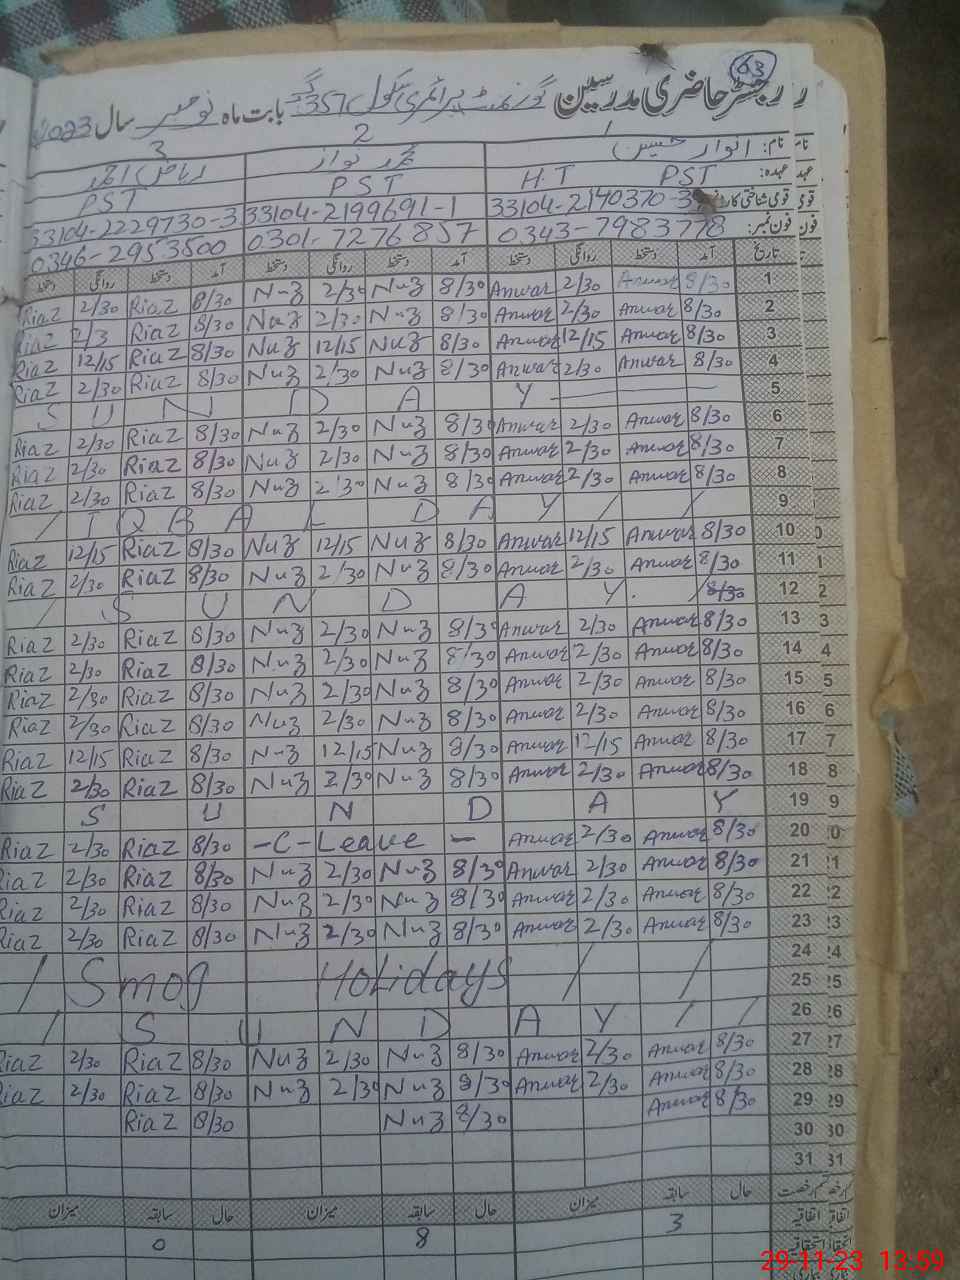 63
رجسٹر حاضری مدرسین گورنمنٹ پرائمری سکول 357 گ ب بابت ماہ نومبر سال 2023
3 2 1
نام: انوار حسین محمد نواز ریاض احمد
عہدہ: PST H.T PST PST
33104-2229730-3 33104-2199691-1 33104-2140370-3 قومی شناختی کارڈ
0346-2953500 0301-7276857 0343-7983778 فون نمبر:
دستخط روانگی دستخط آمد دستخط روانگی دستخط آمد دستخط روانگی دستخط آمد تاریخ
Riaz 2/30 Riaz 8/30 Nuz 2/30 Nuz 8/30 Anwar 2/30 Anwar 8/30 1
Riaz 2/3 Riaz 8/30 Nuz 2/30 Nuz 8/30 Anwar 2/30 Anwar 8/30 2
Riaz 12/15 Riaz 8/30 Nuz 12/15 Nuz 8/30 Anwar 12/15 Anwar 8/30 3
Riaz 2/30 Riaz 8/30 Nuz 2/30 Nuz 8/30 Anwar 2/30 Anwar 8/30 4
S U N D A Y 5
Riaz 2/30 Riaz 8/30 Nuz 2/30 Nuz 8/30 Anwar 2/30 Anwar 8/30 6
Riaz 2/30 Riaz 8/30 Nuz 2/30 Nuz 8/30 Anwar 2/30 Anwar 8/30 7
Riaz 2/30 Riaz 8/30 Nuz 2/30 Nuz 8/30 Anwar 2/30 Anwar 8/30 8
/ I Q B A L D A Y / / 9
Riaz 12/15 Riaz 8/30 Nuz 12/15 Nuz 8/30 Anwar 12/15 Anwar 8/30 10
Riaz 2/30 Riaz 8/30 Nuz 2/30 Nuz 8/30 Anwar 2/30 Anwar 8/30 11
/ S U N D A Y. / 8/30 12
Riaz 2/30 Riaz 8/30 Nuz 2/30 Nuz 8/30 Anwar 2/30 Anwar 8/30 13
Riaz 2/30 Riaz 8/30 Nuz 2/30 Nuz 8/30 Anwar 2/30 Anwar 8/30 14
Riaz 2/30 Riaz 8/30 Nuz 2/30 Nuz 8/30 Anwar 2/30 Anwar 8/30 15
Riaz 2/30 Riaz 8/30 Nuz 2/30 Nuz 8/30 Anwar 2/30 Anwar 8/30 16
Riaz 12/15 Riaz 8/30 Nuz 12/15 Nuz 8/30 Anwar 12/15 Anwar 8/30 17
Riaz 2/30 Riaz 8/30 Nuz 2/30 Nuz 8/30 Anwar 2/30 Anwar 8/30 18
S U N D A Y 19
Riaz 2/30 Riaz 8/30 -C-Leave - Anwar 2/30 Anwar 8/30 20
Riaz 2/30 Riaz 8/30 Nuz 2/30 Nuz 8/30 Anwar 2/30 Anwar 8/30 21
Riaz 2/30 Riaz 8/30 Nuz 2/30 Nuz 8/30 Anwar 2/30 Anwar 8/30 22
Riaz 2/30 Riaz 8/30 Nuz 2/30 Nuz 8/30 Anwar 2/30 Anwar 8/30 23
24
/ Smog Holidays / / 25
/ S U N D A Y / / 26
Riaz 2/30 Riaz 8/30 Nuz 2/30 Nuz 8/30 Anwar 2/30 Anwar 8/30 27
Riaz 2/30 Riaz 8/30 Nuz 2/30 Nuz 8/30 Anwar 2/30 Anwar 8/30 28
Riaz 8/30 Nuz 8/30 Anwar 8/30 29
30
31
میزان سابقہ حال میزان سابقہ حال میزان سابقہ حال قسم رخصت
0 8 3 اتفاقیہ
استحقاقیہ
29-11-23 13:59